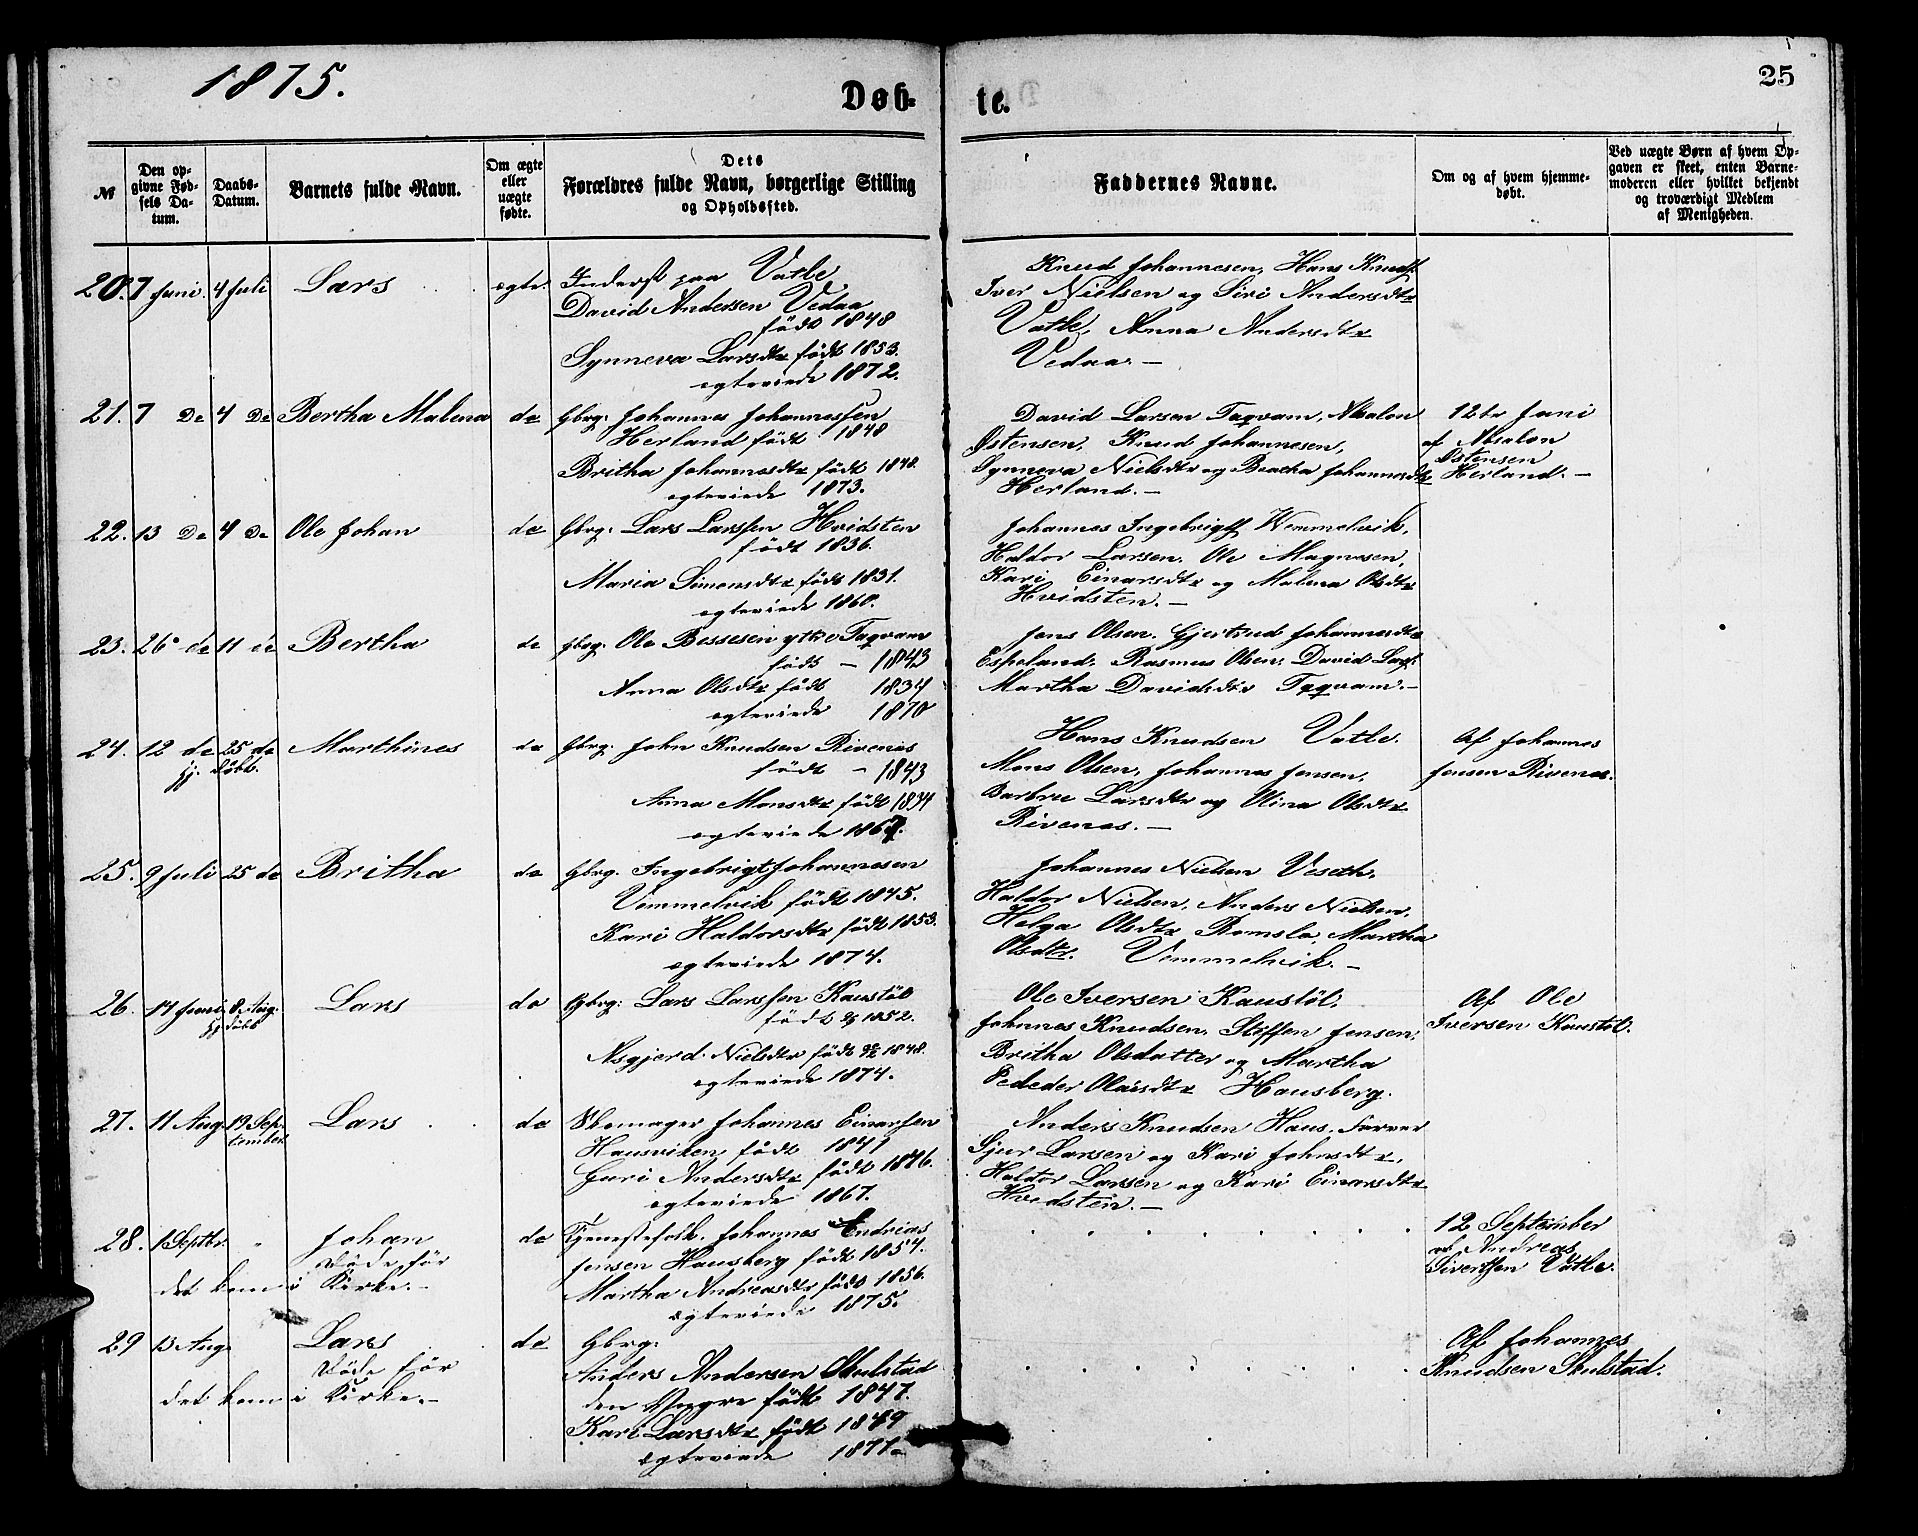 1875.
Døb-
te.
25
№
Den op-
givne Fød-
sels Da-
tum.
Daabs-
Datum.
Barnets fulde Navn.
Om ægte
eller
uægte
fødte.
Dets
Forældres fulde Navn, borgerlige Stilling
og Opholdssted.
Faddernes Navne.
Om og af hvem hjemme-
døbt.
Ved uægte Børn af hvem Op-
gaven er skeet, enten Barne-
moderen eller hvilket bekjendt
og troværdigt Medlem
af Menigheden.
20. 7 Juni. 4 Juli Lars ægte. Inderst paa Vatle
David Andersen Vedaa
født 1848
Synneva Larsdtr født 1853.
egteviede 1872.
Knud Johannesen, Hans Knuds.
Iver Nielsen og Siri Andersdtr
Vatle, Anna Andersdtr
Vedaa. —
21. 7 De 4 De Bertha Malena do Gbrg. Johannes Johannessen
Herland født 1848
Britha Johannesdtr født 1848.
egteviede 1873.
David Larsen Taqvam, Absalon
Østensen, Knud Johannesen,
Synneva Nielsdtr og Beatha Johannesdtr
Herland. —
12te Juni
af Absalon
Østensen
Herland. —
22. 13 De 4 De Ole Johan do Gbrg. Lars Larssen Hvidsten
født 1836.
Maria Simonsdtr født 1831.
egteviede 1860.
Johannes Ingebrigts Wemmelvik,
Haldor Larsen, Ole Magnesen,
Kari Einarsdtr og Malena Olsdtr
Hvidsten. —
23. 26 de 11 de Bertha do Gbrg. Ole Bessesen ytre Taqvam
født — 1843
Anna Olsdtr født 1834
egteviede 1870
Jens Olsen, Gjertrud Johannesdtr
Espeland, Rasmus Olsen, David Lars.
Martha Davidsdtr Taqvam. —
24. 12 de 25 de Marthines do Gbrg. John Knudsen Rivenes
hj. døbt.
født — 1843
Anna Monsdtr født 1844
egteviede 1867.
Hans Knudsen Vatle.
Mons Olsen, Johannes Jensen,
Barbru Larsdtr og Olina Olsdtr
Rivenes. —
Af Johannes
Jensen Rivenes.
25. 9 Juli 25 de Britha do Gbrg. Ingebrigt Johannesen
Vemmelvik født 1845.
Kari Haldorsdtr født 1853.
egteviede 1874.
Johannes Nielsen Veseth,
Haldor Nielsen, Anders Nielsen,
Helga Olsdtr Romslo, Martha
Olsdtr. Vemmelvik. —
26. 14 Juni 8 Aug. Lars do Gbrg. Lars Larssen Haustøl
hj. døbt
født 1852.
Asgjerd Nielsdtr født 1848.
egteviede 1874.
Ole Iversen Haustøl,
Johannes Knudsen, Steffen Jensen,
Britha Olsdatter og Martha
Olaisdtr Hausberg.
Af Ole
Iversen Haustøl.
27. 11 Aug 19 Sep- Lars do Skomager Johannes Einarsen
tember
Hausviken født 1841
Guri Andersdtr født 1846.
egteviede 1867.
Anders Knudsen Haus, Farver
Sjur Larsen og Kari Johnsdtr,
Haldor Larsen og Kari Einarsdtr
Hvidsten. —
28. 1 Septbr. " Johan do Tjenestefolk. Johannes Endrias
Døde før
det kom i Kirke. —
Jensen Hausberg født 1854.
Martha Andreasdtr født 1856.
egteviede 1875.
12 September
af Andreas
Sivertsen Vatle.
29 13 Aug Lars do Gbrg.
Døde før
det kom i Kirke. —
Anders Andersen Skulstad
den Yngre født 1847.
Kari Larsdtr født 1849
egteviede 1871.
Af Johannes
Knudsen Skulstad.